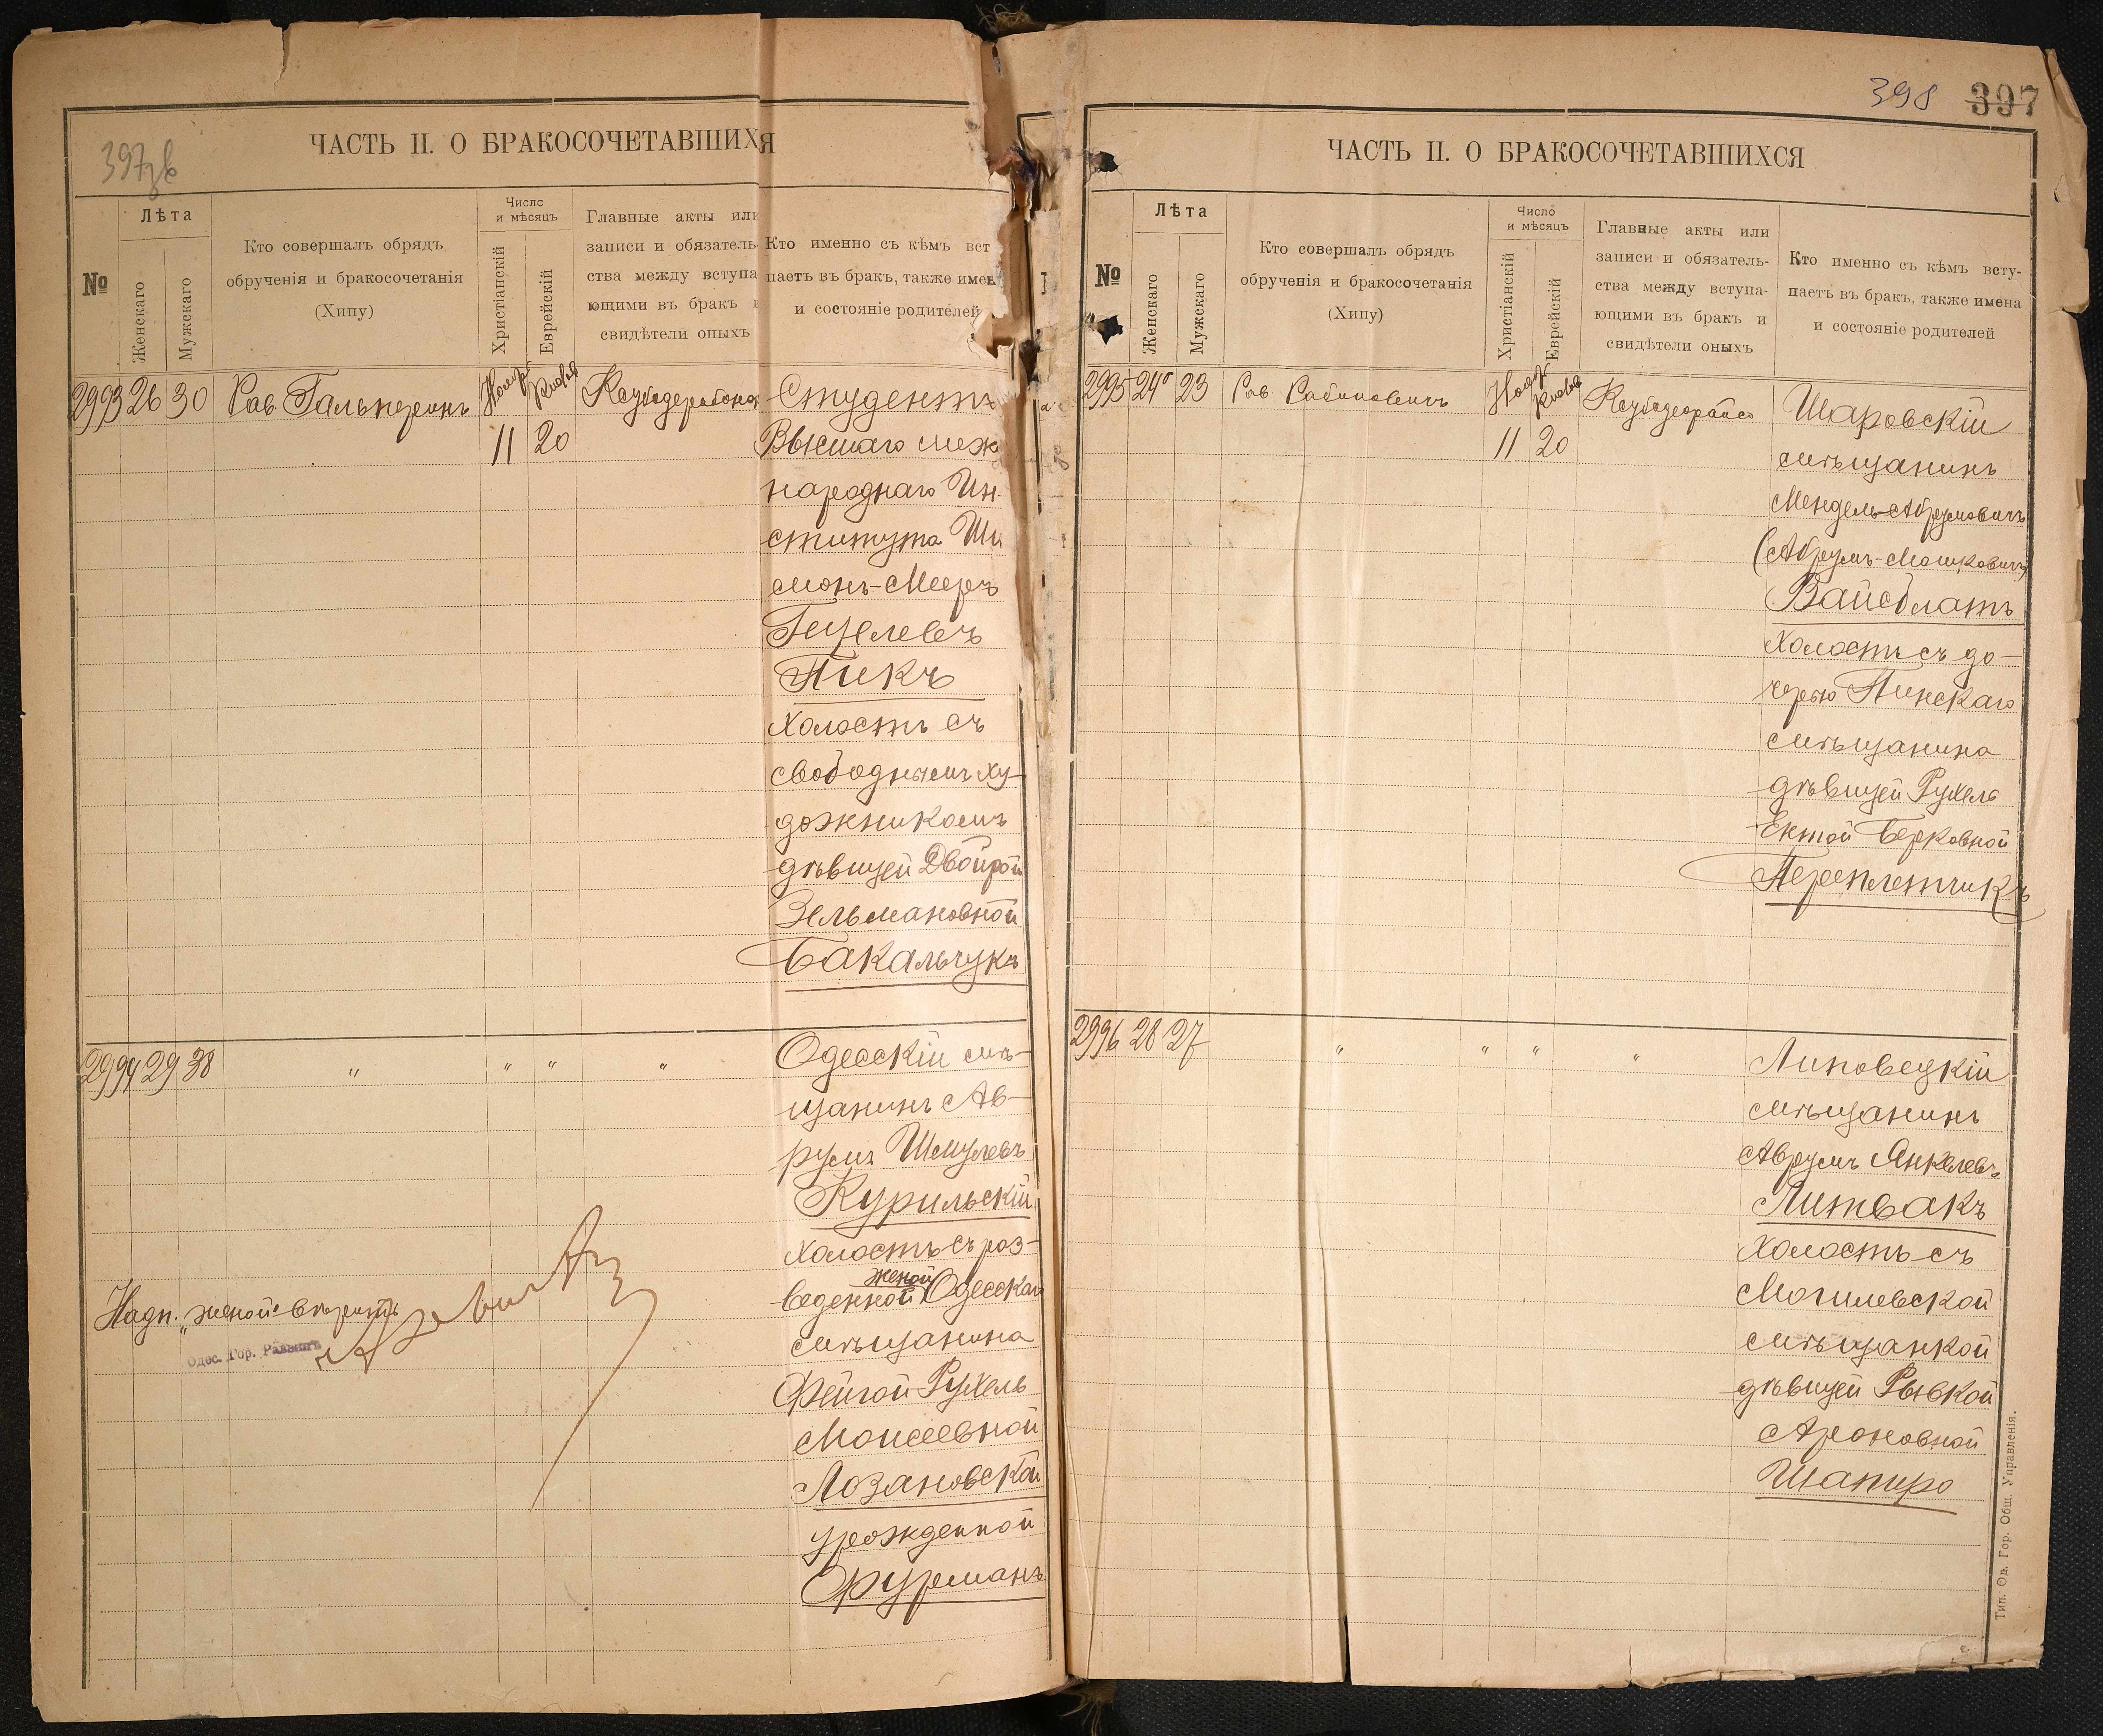 397зв
ЧАСТЬ II. О БРАКОСОЧЕТАВШИХЯ
№
Лѣта
Женскаго
Мужскаго
Кто совершалъ обрядъ
обрученія и бракосочетанія
(Хипу)
Число
и мѣсяцъ
Христіанскій
Еврейскій
Главные акты или
записи и обязатель-
ства между вступа
ющими въ бракъ и
свидѣтели оныхъ
Кто именно съ кѣмъ вст
паетъ въ бракъ, также имен
и состояніе родителей
2993 26 30 Рав. Гальперинъ Ноябр Кислев
11 20
Студентъ
Высшаго меж
народнаго Ин-
ститута Ши
монъ-Мееръ
Гецелевъ
Пикъ
холостъ съ
свободнымъ ху-
дожникомъ
дѣвицей Двойрой
Зельмановной
Бакальчукъ
2994 29 38 " " " "
Одесскій мѣ-
щанинъ Ав-
румъ Шмулевъ
Курильскій
холостъ съ раз-
женой
веденной Одесскаго
мѣщанина
Фейгой Рухель
Моисеевной
Лозановской
урожденной
Фурманъ
Надп. "женой" вѣрить
Одес. Гор. Раввинъ
398 397
ЧАСТЬ II. О БРАКОСОЧЕТАВШИХСЯ
№
Лѣта
Женскаго
Мужскаго
Кто совершалъ обрядъ
обрученія и бракосочетанія
(Хипу)
Число
и мѣсяцъ
Христіанскій
Еврейскій
Главные акты или
записи и обязатель-
ства между вступа-
ющими въ бракъ и
свидѣтели оныхъ
Кто именно съ кѣмъ всту-
паетъ въ бракъ, также имена
и состояніе родителей
2995 24 23 Рав Рабиновичъ Нояб Кислев
11 20
Шаровскій
мѣщанинъ
Мендель-Абрумовичъ
(Абрумъ-Мошковичъ)
Вайсблатъ
холостъ съ до-
черью Пинскаго
мѣщанина
дѣвицей Рухель
Ентой Берковной
Переплетчикъ
2996 28 27 " " " "
Липовецкій
мѣщанинъ
Аврумъ Янкелевъ
Литвакъ
холостъ съ
Могилевской
мѣщанкой
дѣвицей Рывкой
Ароновной
Шапиро
Тип. Од. Гор. Общ. Управленія.